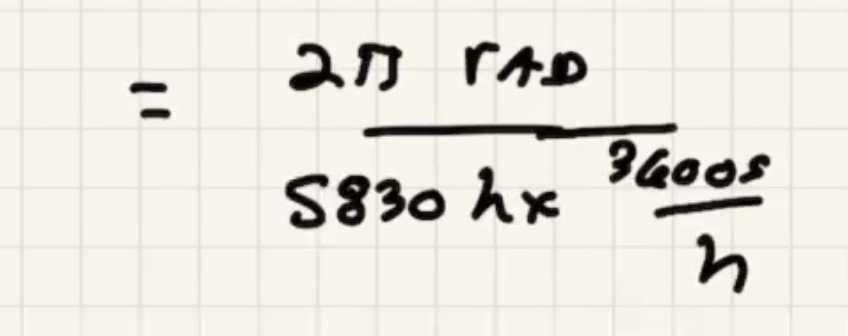 = 2π rAD
5830 h× 3600s
h